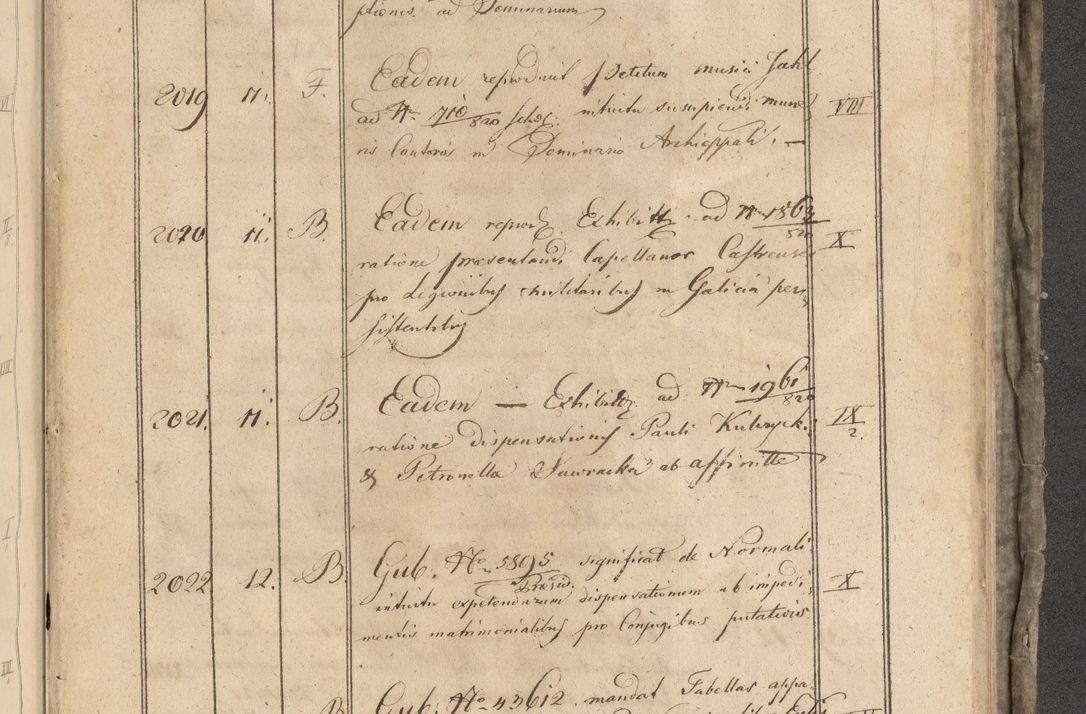 ptionis ad Seminarium
2019 11. F. Eadem reproducit Petitum musici Jahl VIII
ad Nr. 710/820 Schol. intuitu suscipiendi mune
ris Cantoris in Seminario Archieppali. —
2020 11. B. Eadem reprod. Exhibitt ad Nr. 1863/820 X
ratione praesentandi Capellanos Castrenses
pro Legionibus militaribus in Galicia per
sistentibus
2021. 11. B. Eadem — Exhibitt ad Nr. 1961/820 IX/2.
ratione dispensationis Pauli
& Petronella ab affinitte
2022 12. B. Gub. No. 5895/Praesid. significat de Normali X
intuitu expetendarum dispensationum ab impedi
mentis matrimonialibus pro Conjugibus putativis
B Gub. No. 43612. mandat Tabellas appa
VI
II
VIII
I
II